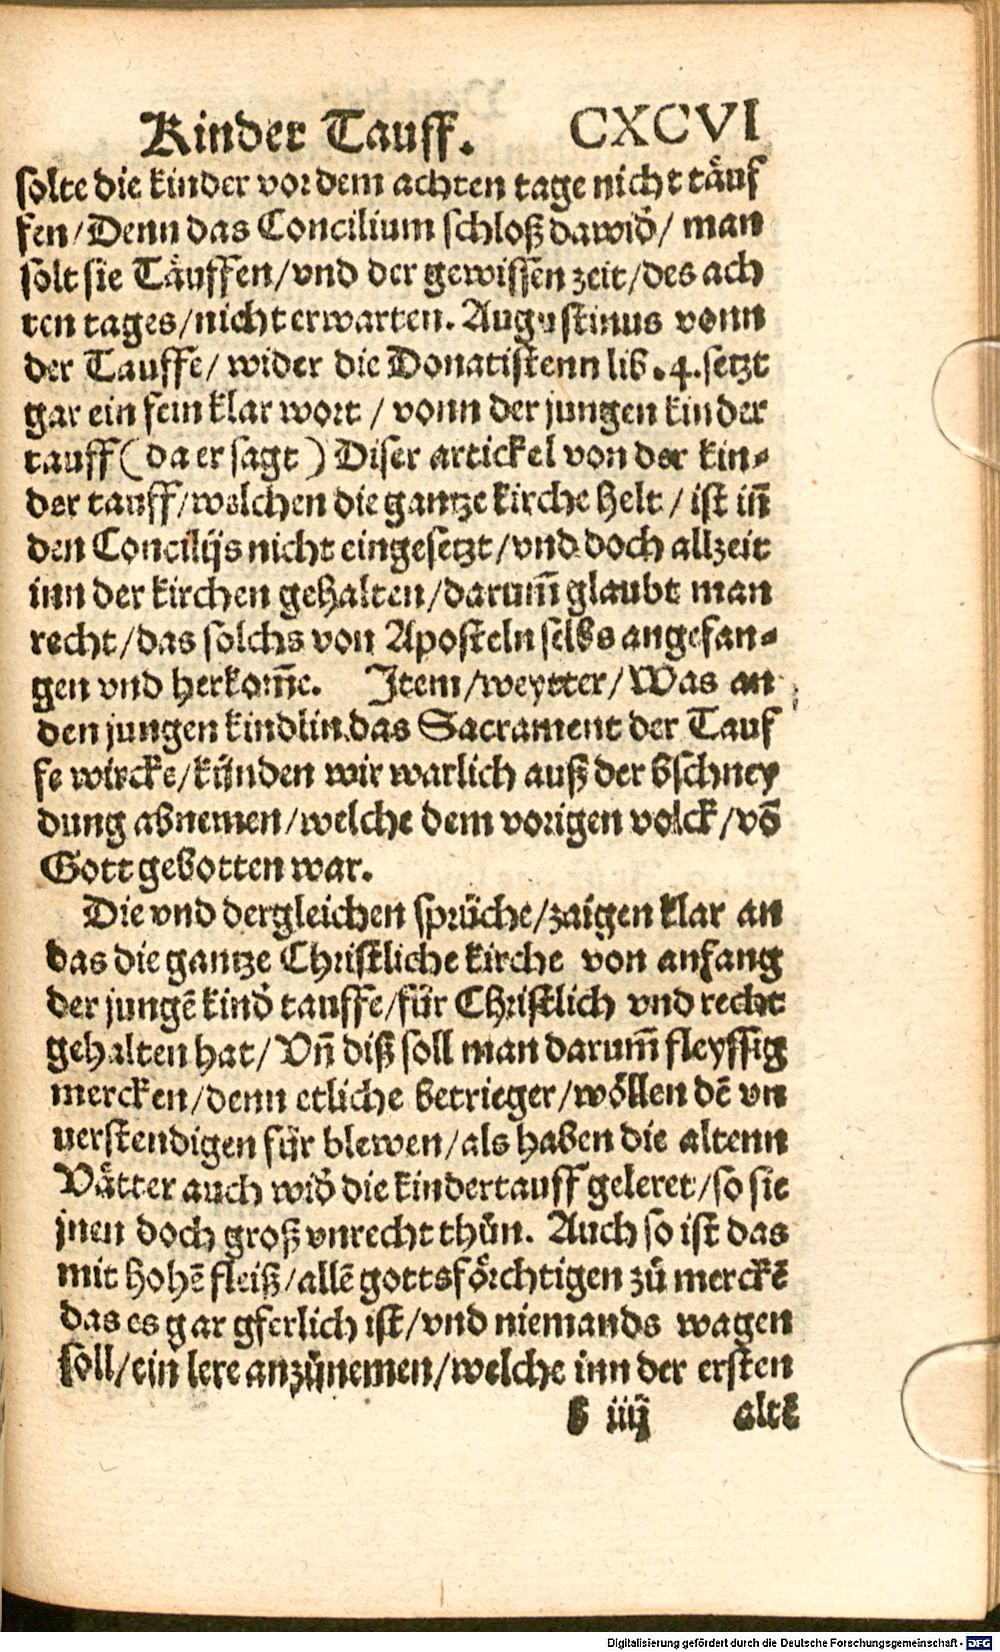 Kinder Tauff. CXCVI
solte die kinder vor dem achten tage nicht täuf
fen/Denn das Concilium schloß dawid̄/ man
solt sie Täuffen/vnd der gewissen zeit/des ach
ten tages/nicht erwarten. Augustinus vonn
der Tauffe/ wider die Donatistenn lib.4.setzt
gar ein fein klar wort / vonn der jungen kinder
tauff (da er sagt) Diser artickel von der kin-
der tauff/welchen die gantze kirche helt / ist iñ
den Concilijs nicht eingesetzt/vnd doch allzeit
inn der kirchen gehalten/darum̃ glaubt man
recht/das solchs von Aposteln selbs angefan-
gen vnd herkom̃e. Item/weytter/Was an
den jungen kindlin das Sacrament der Tauf
fe wircke/künden wir warlich auß der bschney
dung abnemen/welche dem vorigen volck/võ
Gott gebotten war.
Die vnd dergleichen sprüche/zaigen klar an
das die gantze Christliche kirche von anfang
der jungẽ kind̄ tauffe/für Christlich vnd recht
gehalten hat/ Vñ diß soll man darum̃ fleyssig
mercken/denn etliche betrieger/wöllen dẽ vn
uerstendigen für blewen/als haben die altenn
Vätter auch wid̄ die kindertauff geleret/so sie
jnen doch groß vnrecht thůn. Auch so ist das
mit hohẽ fleiß/allẽ gottsförchtigen zů merckẽ
das es gar gferlich ist/vnd niemands wagen
soll/ein lere anzůnemen/welche inn der ersten
b iiij altẽ
Digitalisierung gefördert durch die Deutsche Forschungsgemeinschaft - DFG